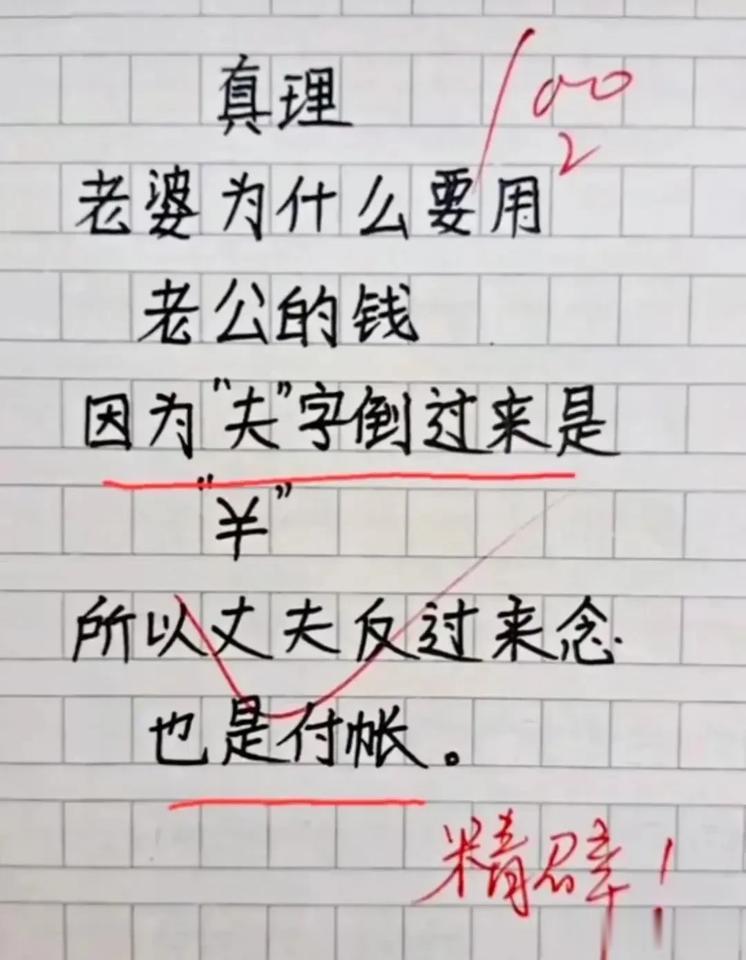 真理
100
2
老婆为什么要用
老公的钱
因为"夫"字倒过来是
"¥"
所以丈夫反过来念
也是付帐。
精辟!